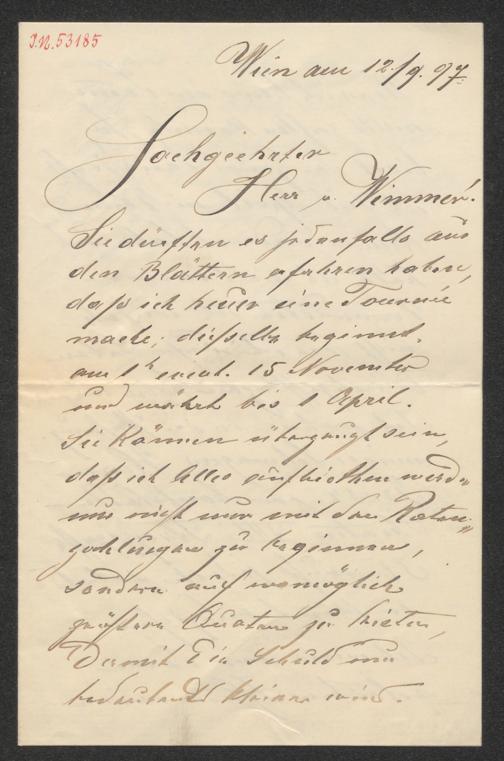 J.N. 53185
Wien am 12./9. 97
Hochgeehrter
Herr v. Wimmer!
Sie dürften es jedenfalls aus
den Blättern erfahren haben,
daß ich heuer eine Tournée
mache; dieselbe beginnt
am 1t event. 15 November
und währt bis 1 April.
Sie können überzeugt sein,
daß ich Alles aufbiethen werde
um nicht nur mit den Raten-
zahlungen zu beginnen,
sondern auch womöglich
größere Quoten zu bieten,
Damit die Schuld um
bedeutend kleiner wird.